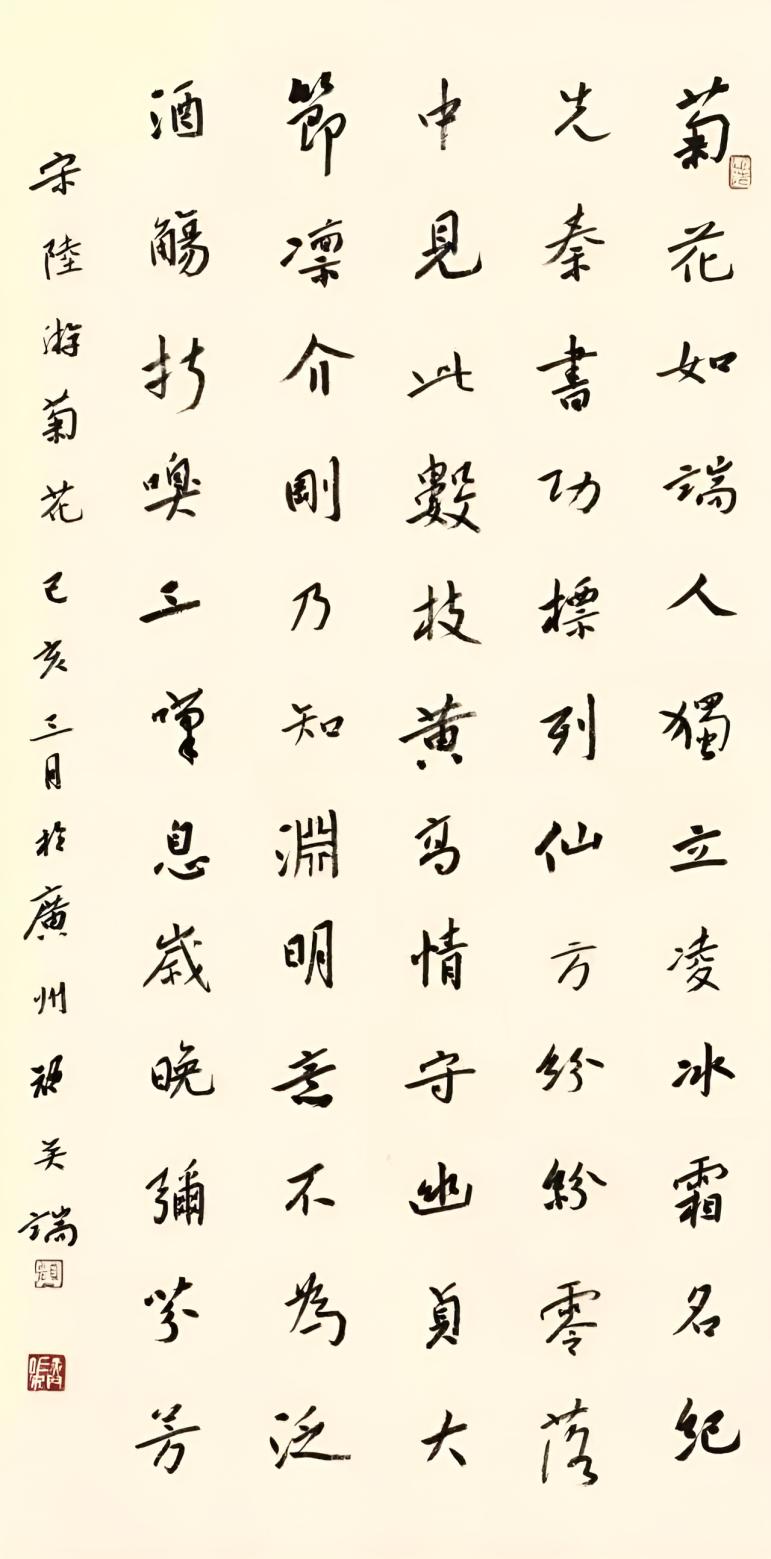 菊花如端人獨立凌冰霜名紀
先秦書功標列仙方紛紛零落
中見此數枝黄高情守幽貞大
節凜介剛乃知淵明意不為泛
酒觴折嗅三嘆息歲晚彌芬芳
宋陸游菊花己亥三月於廣州端